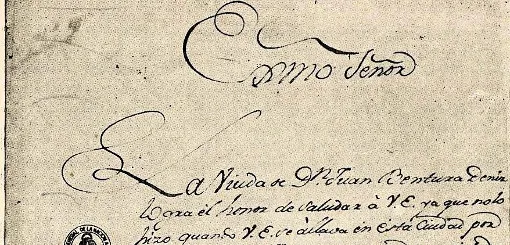 Exmo Señor
La Viuda de Dn. Juan Bentura Denir
logra el honor de saludar à V.E. ya que no lo
hizo quando V.E. se allava en esta Ciudad por